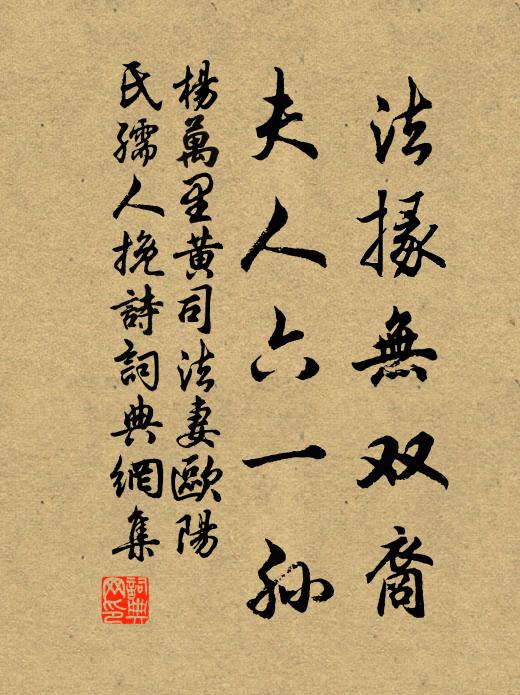 法掾無双裔
夫人六一孙
楊萬里黄司法妻歐陽
氏孺人挽詩詞典網集
詞典网印